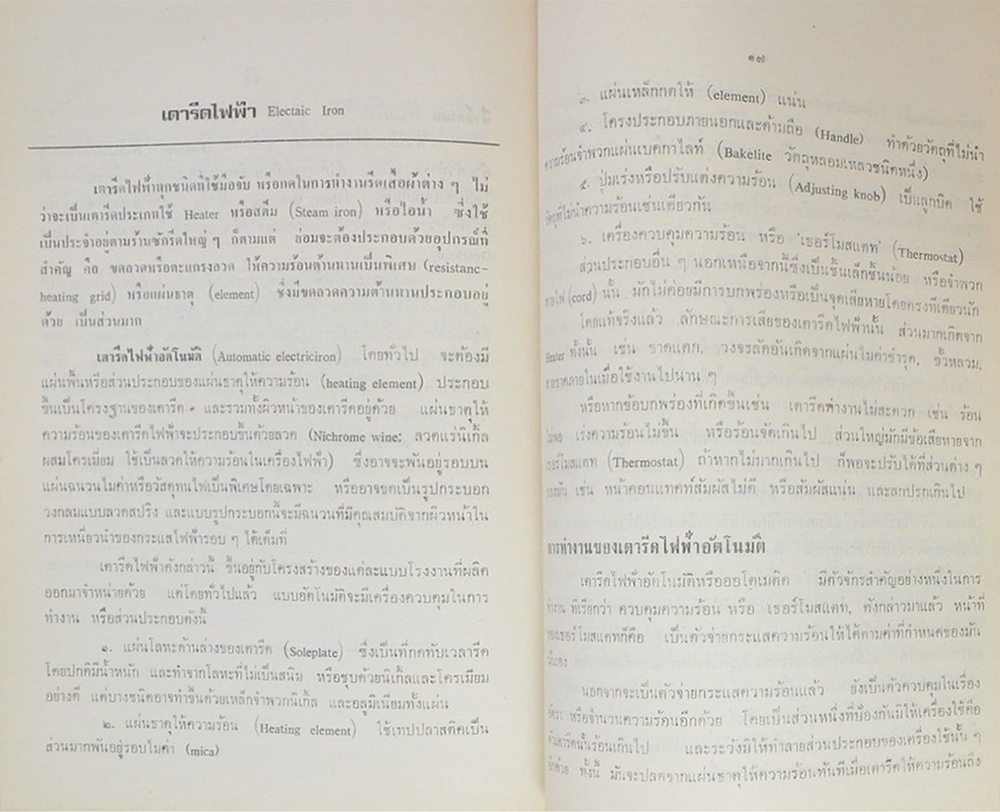 เตารีดไฟฟ้า Electaic Iron
เตารีดไฟฟ้าทุกชนิดที่ใช้มือจับ หรือกดในการทำงานรีดเสื้อผ้าต่าง ๆ ไม่
ว่าจะเป็นเตารีดประเภทใช้ Heater หรือสตีม (Steam iron) หรือไอน้ำ ซึ่งใช้
เป็นประจำอยู่ตามร้านซักรีดใหญ่ ๆ ก็ตามแต่ ย่อมจะต้องประกอบด้วยอุปกรณ์ที่
สำคัญ คือ ขดลวดหรือตะแกรงลวด ให้ความร้อนต้านทานเป็นพิเศษ (resistanc-
heating grid) หรือแผ่นธาตุ (element) ซึ่งมีขดลวดความต้านทานประกอบอยู่
ด้วย เป็นส่วนมาก
เตารีดไฟฟ้าอัตโนมัติ (Automatic electriciron) โดยทั่วไป จะต้องมี
แผ่นพื้นหรือส่วนประกอบของแผ่นธาตุให้ความร้อน (heating element) ประกอบ
ขึ้นเป็นโครงฐานของเตารีด และรวมทั้งผิวหน้าของเตารีดอยู่ด้วย แผ่นธาตุให้
ความร้อนของเตารีดไฟฟ้าจะประกอบขึ้นด้วยลวด (Nichrome wine: ลวดแร่นิเกิ้ล
ผสมโครเมี่ยม ใช้เป็นลวดให้ความร้อนในเครื่องไฟฟ้า) ซึ่งอาจจะพันอยู่รอบบน
แผ่นฉนวนไมก้าหรือวัสดุทนไฟเป็นพิเศษโดยเฉพาะ หรืออาจขดเป็นรูปกระบอก
วงกลมแบบลวดสปริง และแบบรูปกระบอกนี้จะมีฉนวนที่มีคุณสมบัติจากผิวหน้าใน
การเหนี่ยวนำของกระแสไฟฟ้ารอบ ๆ ได้เต็มที่
เตารีดไฟฟ้าดังกล่าวนี้ ขึ้นอยู่กับโครงสร้างของแต่ละแบบโรงงานที่ผลิต
ออกมาจำหน่ายด้วย แต่โดยทั่วไปแล้ว แบบอัตโนมัติจะมีเครื่องควบคุมในการ
ทำงาน หรือส่วนประกอบดังนี้
๑. แผ่นโลหะด้านล่างของเตารีด (Soleplate) ซึ่งเป็นที่กดทับเวลารีด
โดยปกติมีน้ำหนัก และทำจากโลหะที่ไม่เป็นสนิม หรือชุบด้วยนิเกิ้ลและโครเมียม
อย่างดี แต่บางชนิดอาจทำขึ้นด้วยเหล็กจำพวกนิเกิ้ล และอลูมิเนียมทั้งแผ่น
๒. แผ่นธาตุให้ความร้อน (Heating element) ใช้เทปปลาสติคเป็น
ส่วนมากพันอยู่รอบไมก้า (mica)
๑๗
๓. แผ่นเหล็กกดให้ (element) แน่น
๔. โครงประกอบภายนอกและด้ามถือ (Handle) ทำด้วยวัตถุที่ไม่นำ
ความร้อนจำพวกแผ่นเบคกาไลท์ (Bakelite วัตถุหลอมเหลวชนิดหนึ่ง)
๕. ปุ่มเร่งหรือปรับแต่งความร้อน (Adjusting knob) เป็นลูกบิด ใช้
วัตถุที่ไม่นำความร้อนเช่นเดียวกัน
๖. เครื่องควบคุมความร้อน หรือ 'เธอร์โมสแตท' (Thermostat)
ส่วนประกอบอื่น ๆ นอกเหนือจากนี้ซึ่งเป็นชิ้นเล็กชิ้นน้อย หรือจำพวก
สายไฟ (cord) นั้น มักไม่ค่อยมีการบกพร่องหรือเป็นจุดเสียหายโดยตรงทีเดียวนัก
โดยแท้จริงแล้ว ลักษณะการเสียของเตารีดไฟฟ้านั้น ส่วนมากเกิดจาก
Heater ทั้งนั้น เช่น ธาตุแตก, วงจรลัดอันเกิดจากแผ่นไมก้าชำรุด, ขั้วหลวม,
ภายในเมื่อใช้งานไปนาน ๆ
หรือหากข้อบกพร่องที่เกิดขึ้นเช่น เตารีดทำงานไม่สะดวก เช่น ร้อน
ไม่พอ เร่งความร้อนไม่ขึ้น หรือร้อนจัดเกินไป ส่วนใหญ่มักมีข้อเสียหายจาก
เธอร์โมสแตท (Thermostat) ถ้าหากไม่มากเกินไป ก็พอจะปรับได้ที่ส่วนต่าง ๆ
ของมัน เช่น หน้าคอนแทคท์สัมผัสไม่ดี หรือสัมผัสแน่น และสกปรกเกินไป
การทำงานของเตารีดไฟฟ้าอัตโนมัติ
เตารีดไฟฟ้าอัตโนมัติหรือออโตเมติค มีตัวจักรสำคัญอย่างหนึ่งในการ
ทำงาน ที่เรียกว่า ควบคุมความร้อน หรือ เธอร์โมสแตท, ดังกล่าวมาแล้ว หน้าที่
ของเธอร์โมสแตทก็คือ เป็นตัวจ่ายกระแสความร้อนให้ได้ตามค่าที่กำหนดของมัน
นอกจากจะเป็นตัวจ่ายกระแสความร้อนแล้ว ยังเป็นตัวควบคุมในเรื่อง
อัตรา หรือจำนวนความร้อนอีกด้วย โดยเป็นส่วนหนึ่งที่ป้องกันมิให้เครื่องใช้คือ
ตัวเตารีดนั้นร้อนเกินไป และระวังมิให้ทำลายส่วนประกอบของเครื่องใช้นั้น ๆ
อีกด้วย ทั้งนี้ มันจะปลดจากแผ่นธาตุให้ความร้อนทันทีเมื่อเตารีดให้ความร้อนถึง